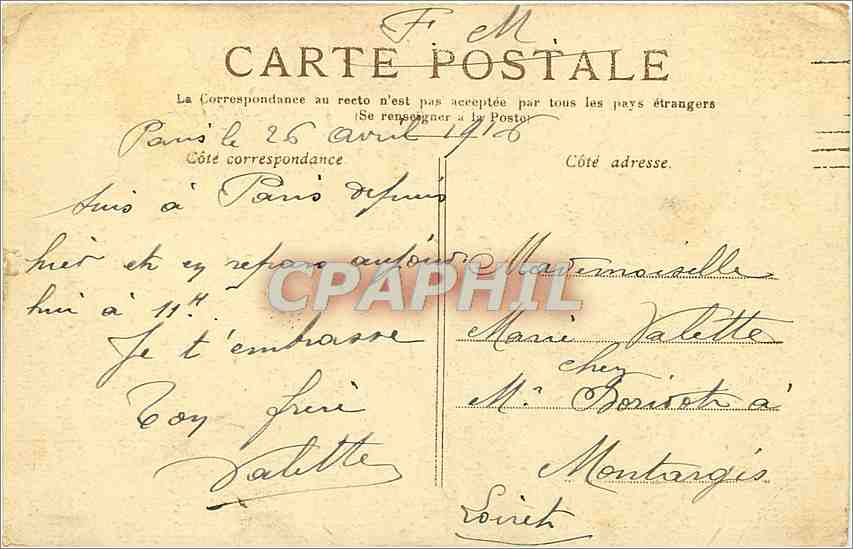 F M
CARTE POSTALE
La Correspondance au recto n'est pas acceptée par tous les pays étrangers
(Se renseigner a la Poste)
Paris le 26 avril 1916
Côté correspondance
Suis à Paris depuis
hier et en repars aujourd'
hui à 11H
Je t'embrasse
Ton frère
Valette
Côté adresse.
Mademoiselle
Marie Valette
chez
Mr à
Montargis
Loiret
CPAPHIL